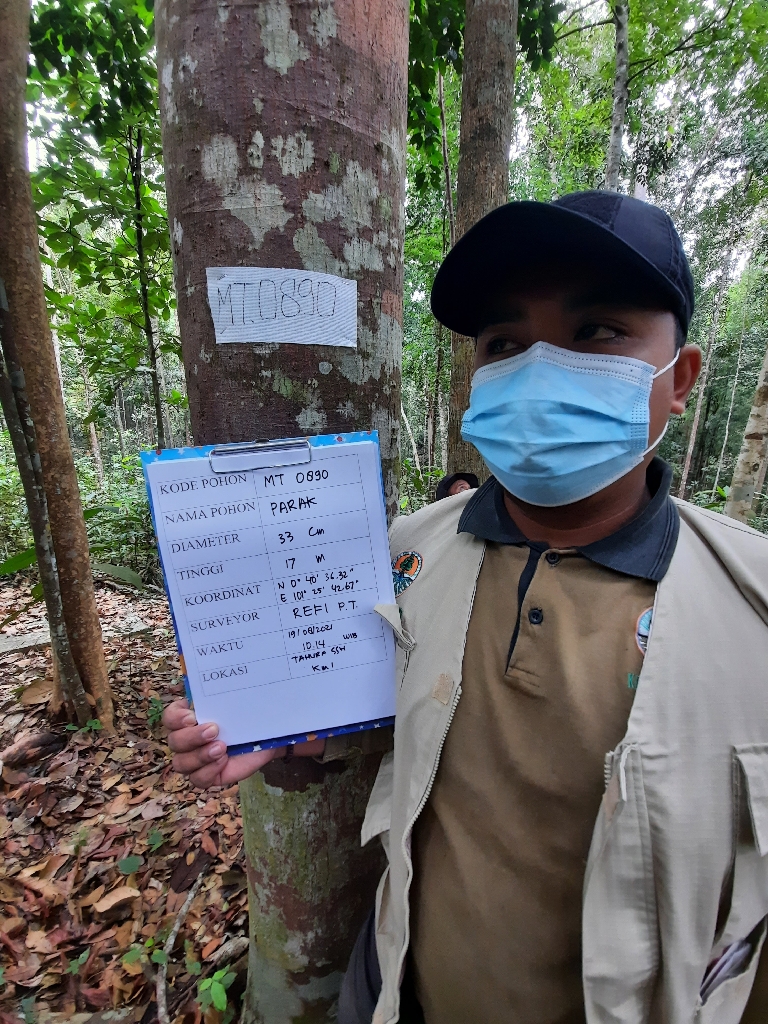 MT 0890
KODE POHON MT 0890
NAMA POHON PARAK
DIAMETER 33 Cm
TINGGI 17 m
KOORDINAT N 0° 40' 36.32"
E 101° 25' 42.67"
SURVEYOR REFI P.T.
WAKTU 19/08/2021
10.14 WIB
LOKASI TAHURA SSH
KM 1